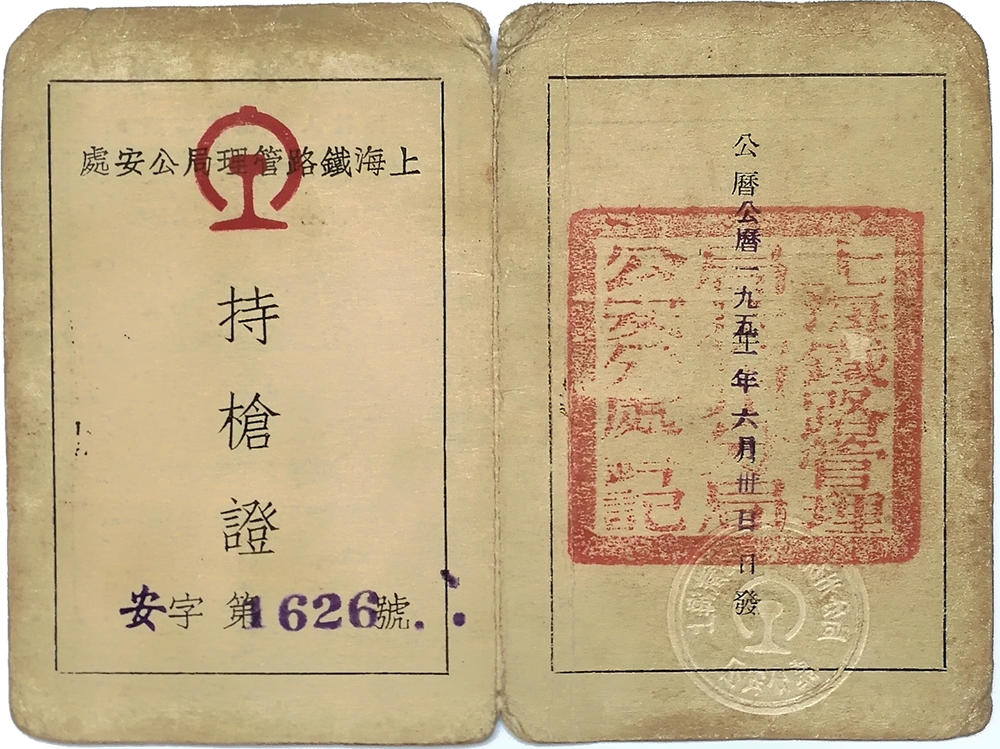 上海鐵路管理局公安處
持槍證
安字第1626號
公曆公曆一九五一年六月卅日日發
上海鐵路管理
公安分處記